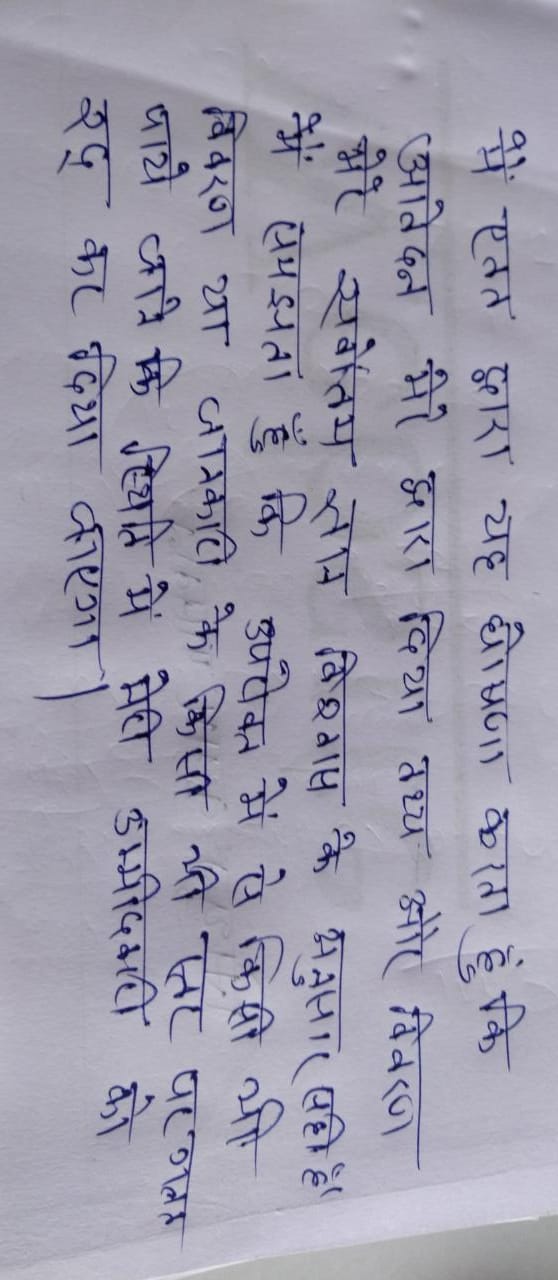 में एतत द्वारा यह घोषणा करता हूं कि
आवेदन में मेरे द्वारा दिया तथ्य और विवरण
मेरे सर्वोत्तम ज्ञान विश्वास के अनुसार सही हैं
मैं समझता हूँ कि उपरोक्त में से किसी भी
विवरण या जानकारी के किसी भी स्तर पर गलत
पाये जाने कि स्थिति में मेरी उम्मीदवारी को
रद्द कर दिया जाएगा।